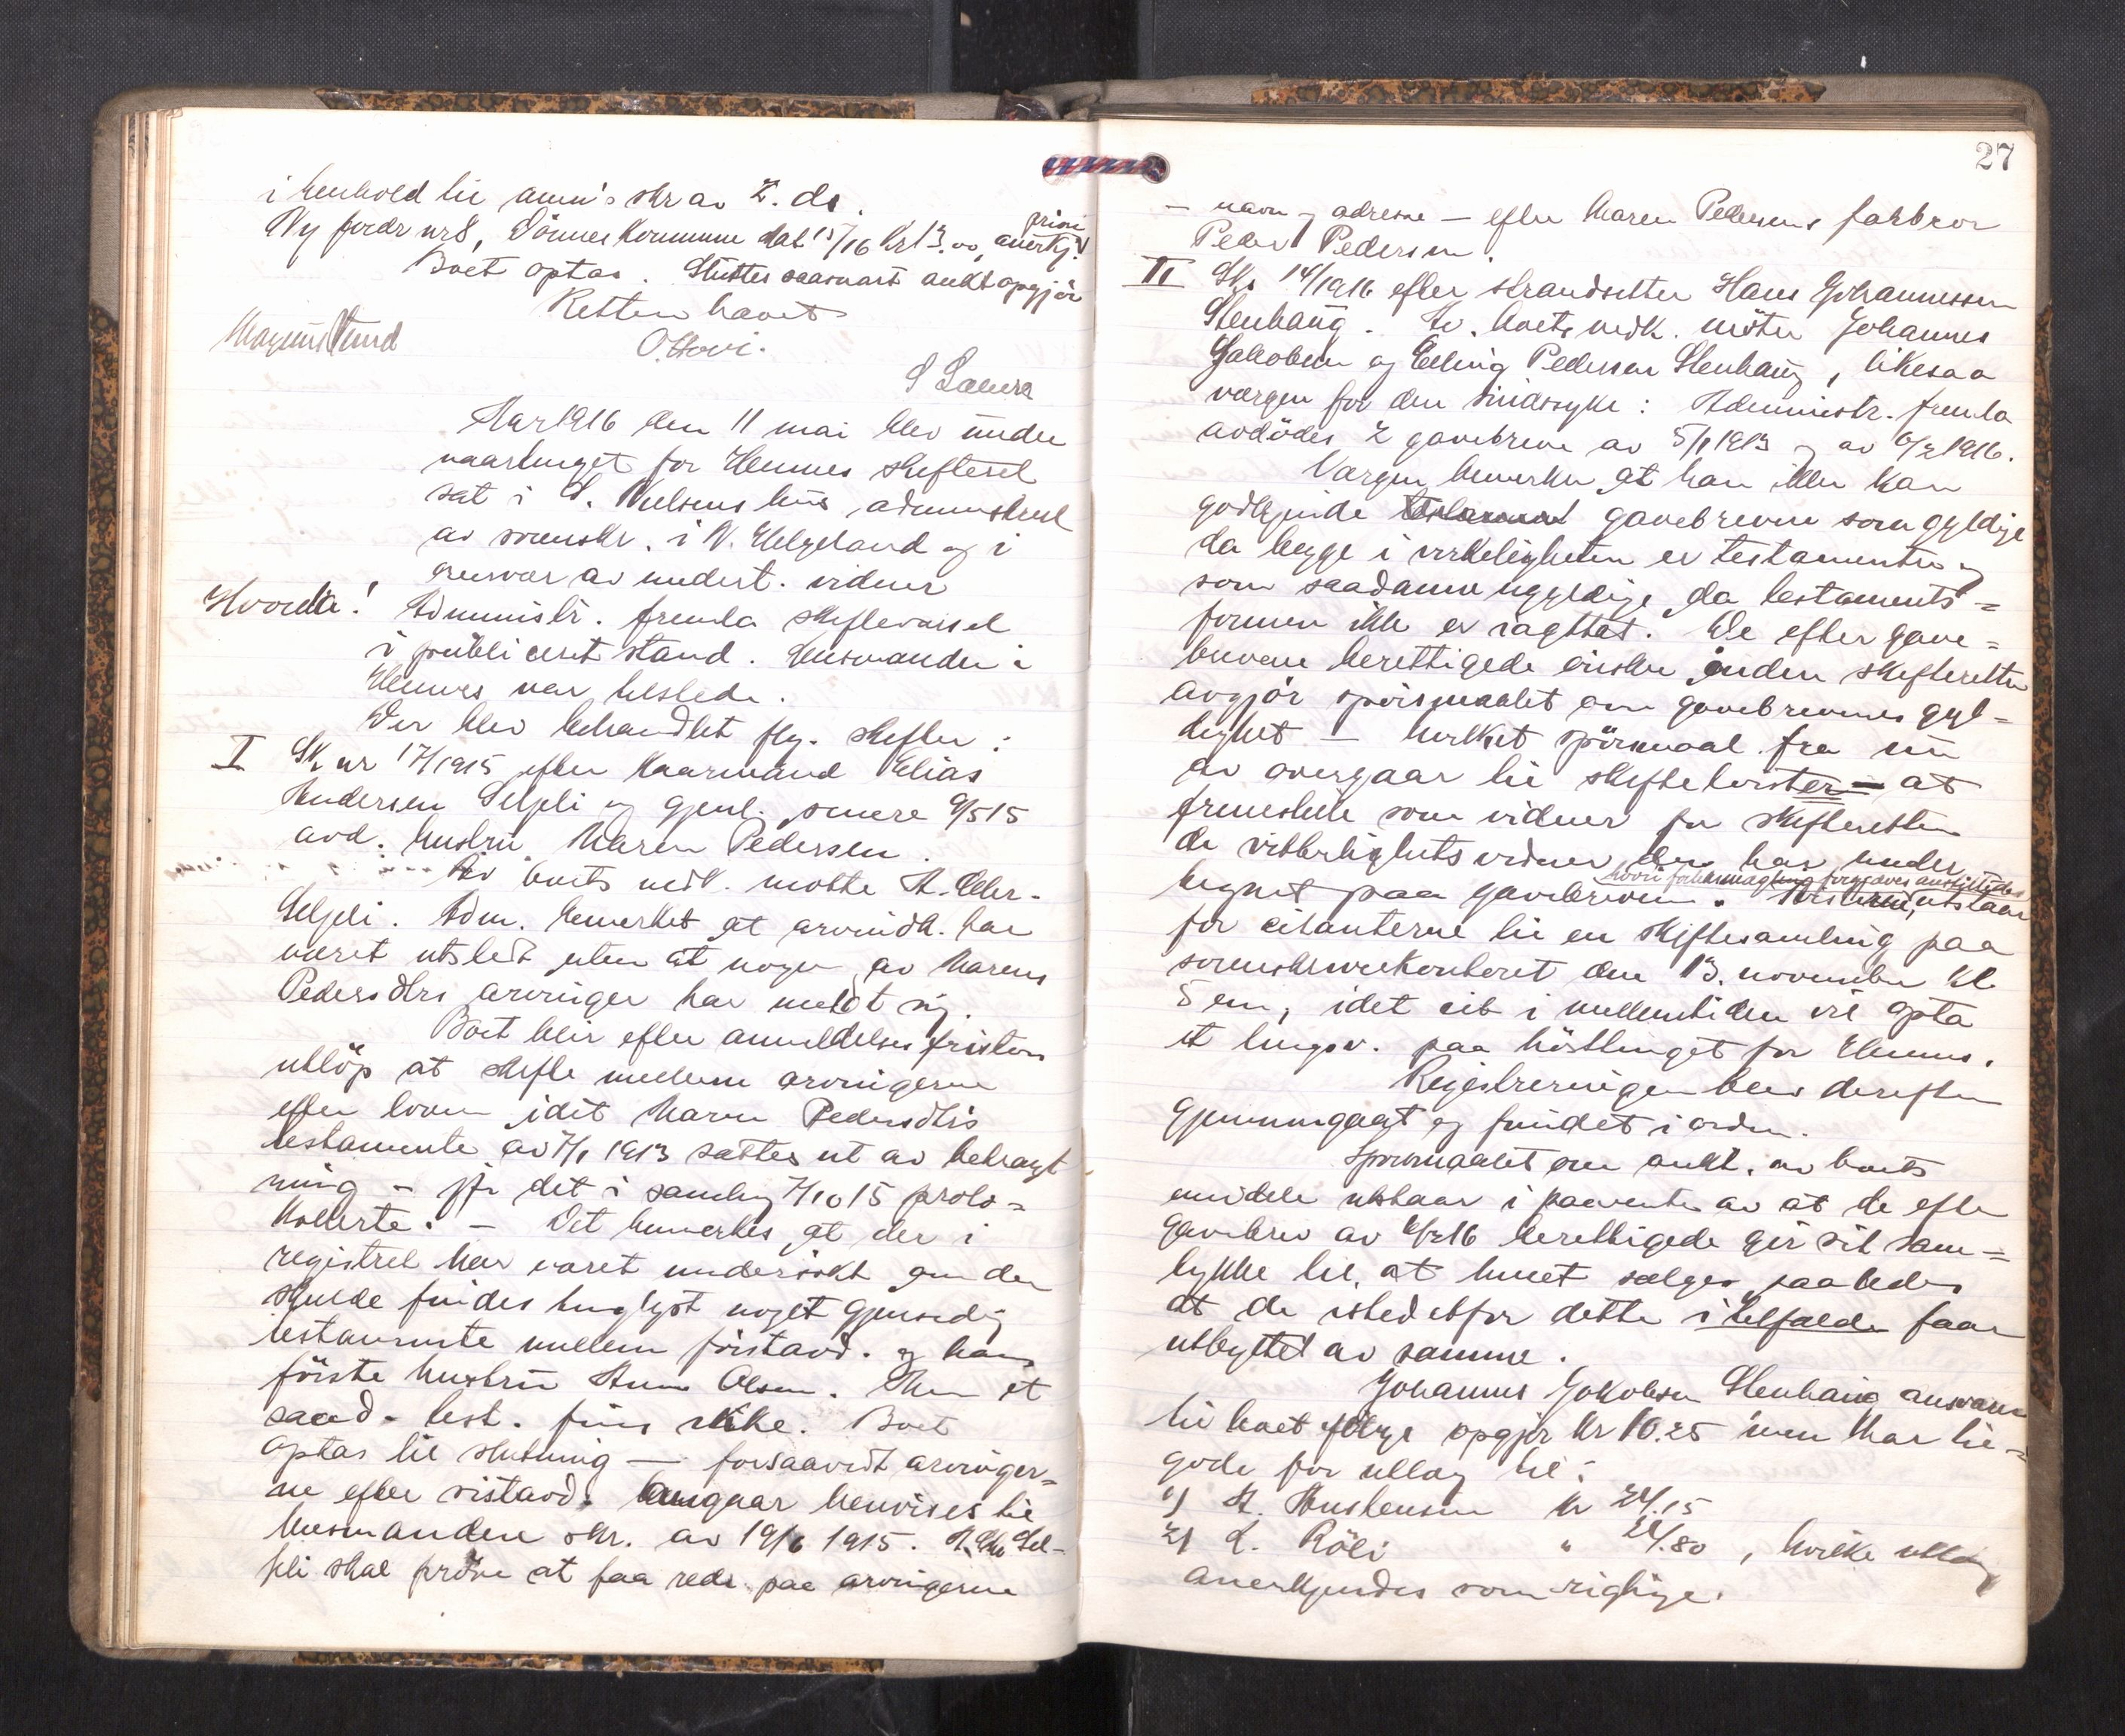 i henhold til anm's skr av 2. ds.
Ny fordr nr 8, Dönnes kommune dat 15/16 kr 13.00, anerkj.
prior.
Boet optas. Sluttes saasnart auktopgjör
Retten hævet
Magnus Lund
O. Hovi.
Aar 1916 den 11 mai blev under
vaartinget for Hemnes skifteret
sat i S. Nielsens hus, administrert
av sorenskr. i N. Helgeland og i
overvær av undert. vidner
Hvorda! Administr. fremla skiftevarsel
i publiceret stand. Lensmanden i
Hemnes var tilstede.
Der blev behandlet flg. skifter:
I Sk nr 17/1915 efter kaarmand Elias
Andersen Seljeli og gjenl. senere 9/5 15
avd. hustru Maren Pedersen.
Av boets vedk. mötte A.
Seljeli. Adm. bemerket at arveindk. har
været utstedt uten at nogen av Maren
Pedersdtrs arvinger har meldt sig.
Boet blir efter anmeldelsesfristens
utlöp at skifte mellem arvingerne
efter loven idet Maren Pedersdtrs
testamente av 7/1 1913 sættes ut av betragt
ning – jfr det i samling 7/10 15 proto=
kollerte. – Det bemerkes at der i
registret har været undersökt om der
skulde findes tinglyst noget gjensidig
testamente mellem förstavd. og hans
förste hustru Anne Olsen. Men et
saad. test. fins ikke. Boet
optas til slutning — forsaavidt arvinger=
ne efter sistavd. angaar henvises til
lensmandens skr. av 19/6 1915. A. Sel-
jeli skal pröve at faa rede paa arvingerne
27
– navn og adresse – efter Maren Pedersens farbror
Peder Pedersen.
II Sk. 14/1916 efter strandsitter Hans Johannessen
Stenhaug. Av. boets vedk. möter Johannes
Jakobsen og Elling Pedersen Stenhaug, likesaa
værgen for den sindssyke: Administr. fremla
avdödes 2 gavebreve av 5/1 1913 og av 6/2 1916.
Værgen bemerker at han ikke kan
godkjende gavebrevene som gyldige
da begge i virkeligheten er testamenter og
som saadanne ugyldige da testaments=
formen ikke er iagttat. De efter gave=
brevene berettigede önsker inden skifteretten
avgjör spörsmaalet om gavebrevenes gyl=
dighet – hvilket spörsmaal fra nu
av overgaar til skiftetvister – at
fremstille som vidner for skifteretten
de vitterlighetsvidner der har under
tegnet paa gavebrevene. utstaar
hvori forliksmægling forgjæves anstilledes
for citanterne til en skiftesamling paa
sorenskriverkontoret den 13. november kl
5 em, idet cit i mellemtiden vil opta
et tingsv. paa hösttinget for Hemnes.
Registreringen blev derefter
gjennemgaat og fundet i orden.
Spörsmaalet om aukt. av boets
midele utstaar i paavente av at de efter
gavebrev av 6/2 16 berettigede gir sit sam=
tykke til, at huset sælges saaledes
at de istedetfor dette i tilfælde faar
utbyttet av samme.
Johannes Jakobsen Stenhaug ansvarer
til boet ifölge opgjör kr 10.25 men har til=
gode for utlæg til:
1) A. kr 24.15
2) L. Röli " 21.80, hvilke utlæg
anerkjendes som rigtige.